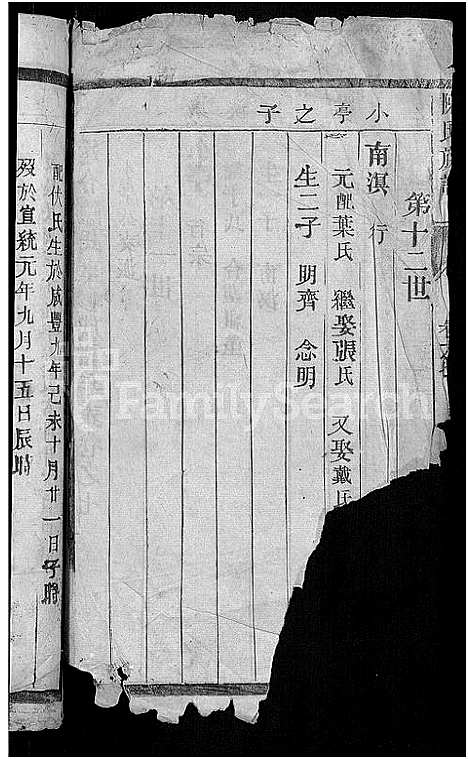 陳氏族譜
第十二世
小亭之子
南溟 行
元配葉氏 繼娶張氏 又娶戴氏
生二子 明齊 念明
配伏氏生於咸豐九年己未十月廿一日子時
歿於宣統元年九月十五日辰時
FamilySearch